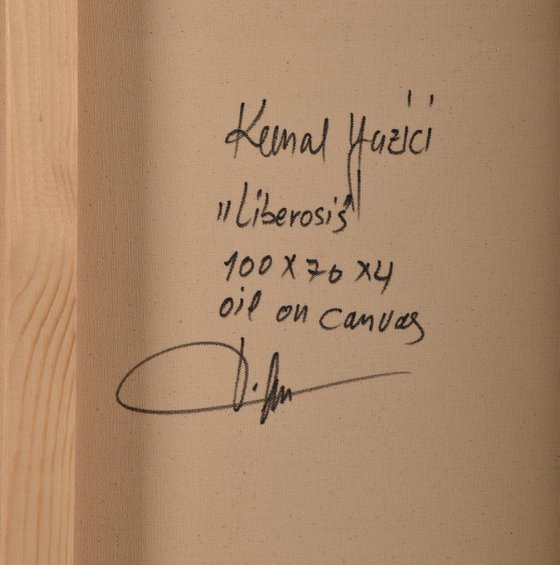 Kemal Yazici
"Liberosis"
100 x 70 x 4
oil on canvas